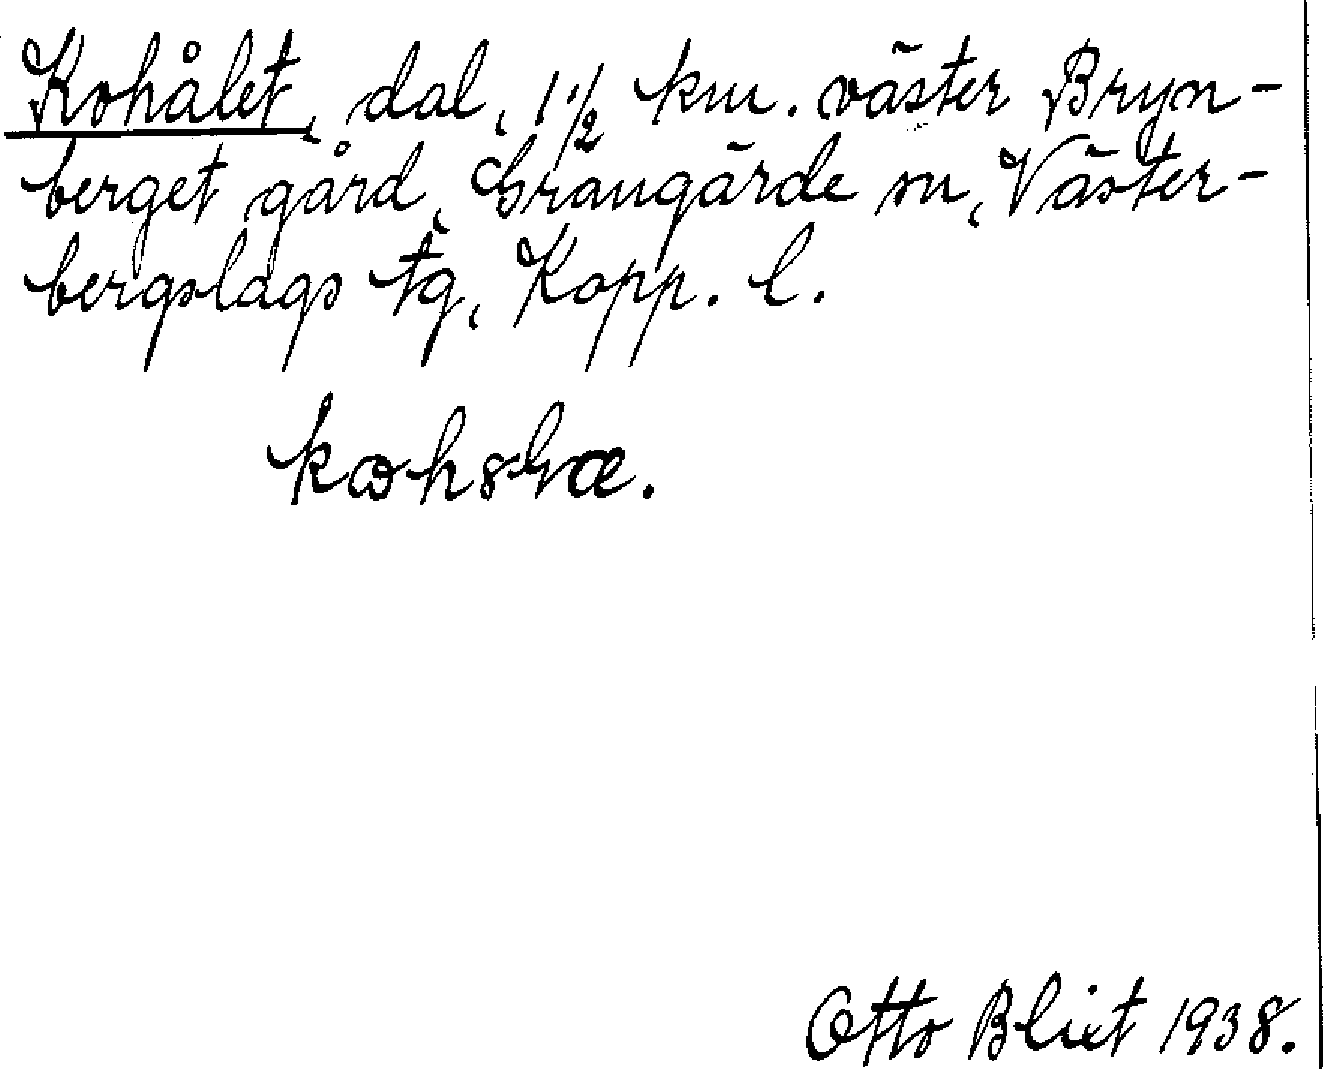 Kohålet, dal, 1 1/2 km. väster Bryn-
berget gård, Grangärde sn, Väster-
bergslags tg, Kopp. l.
Otto Blixt 1938.